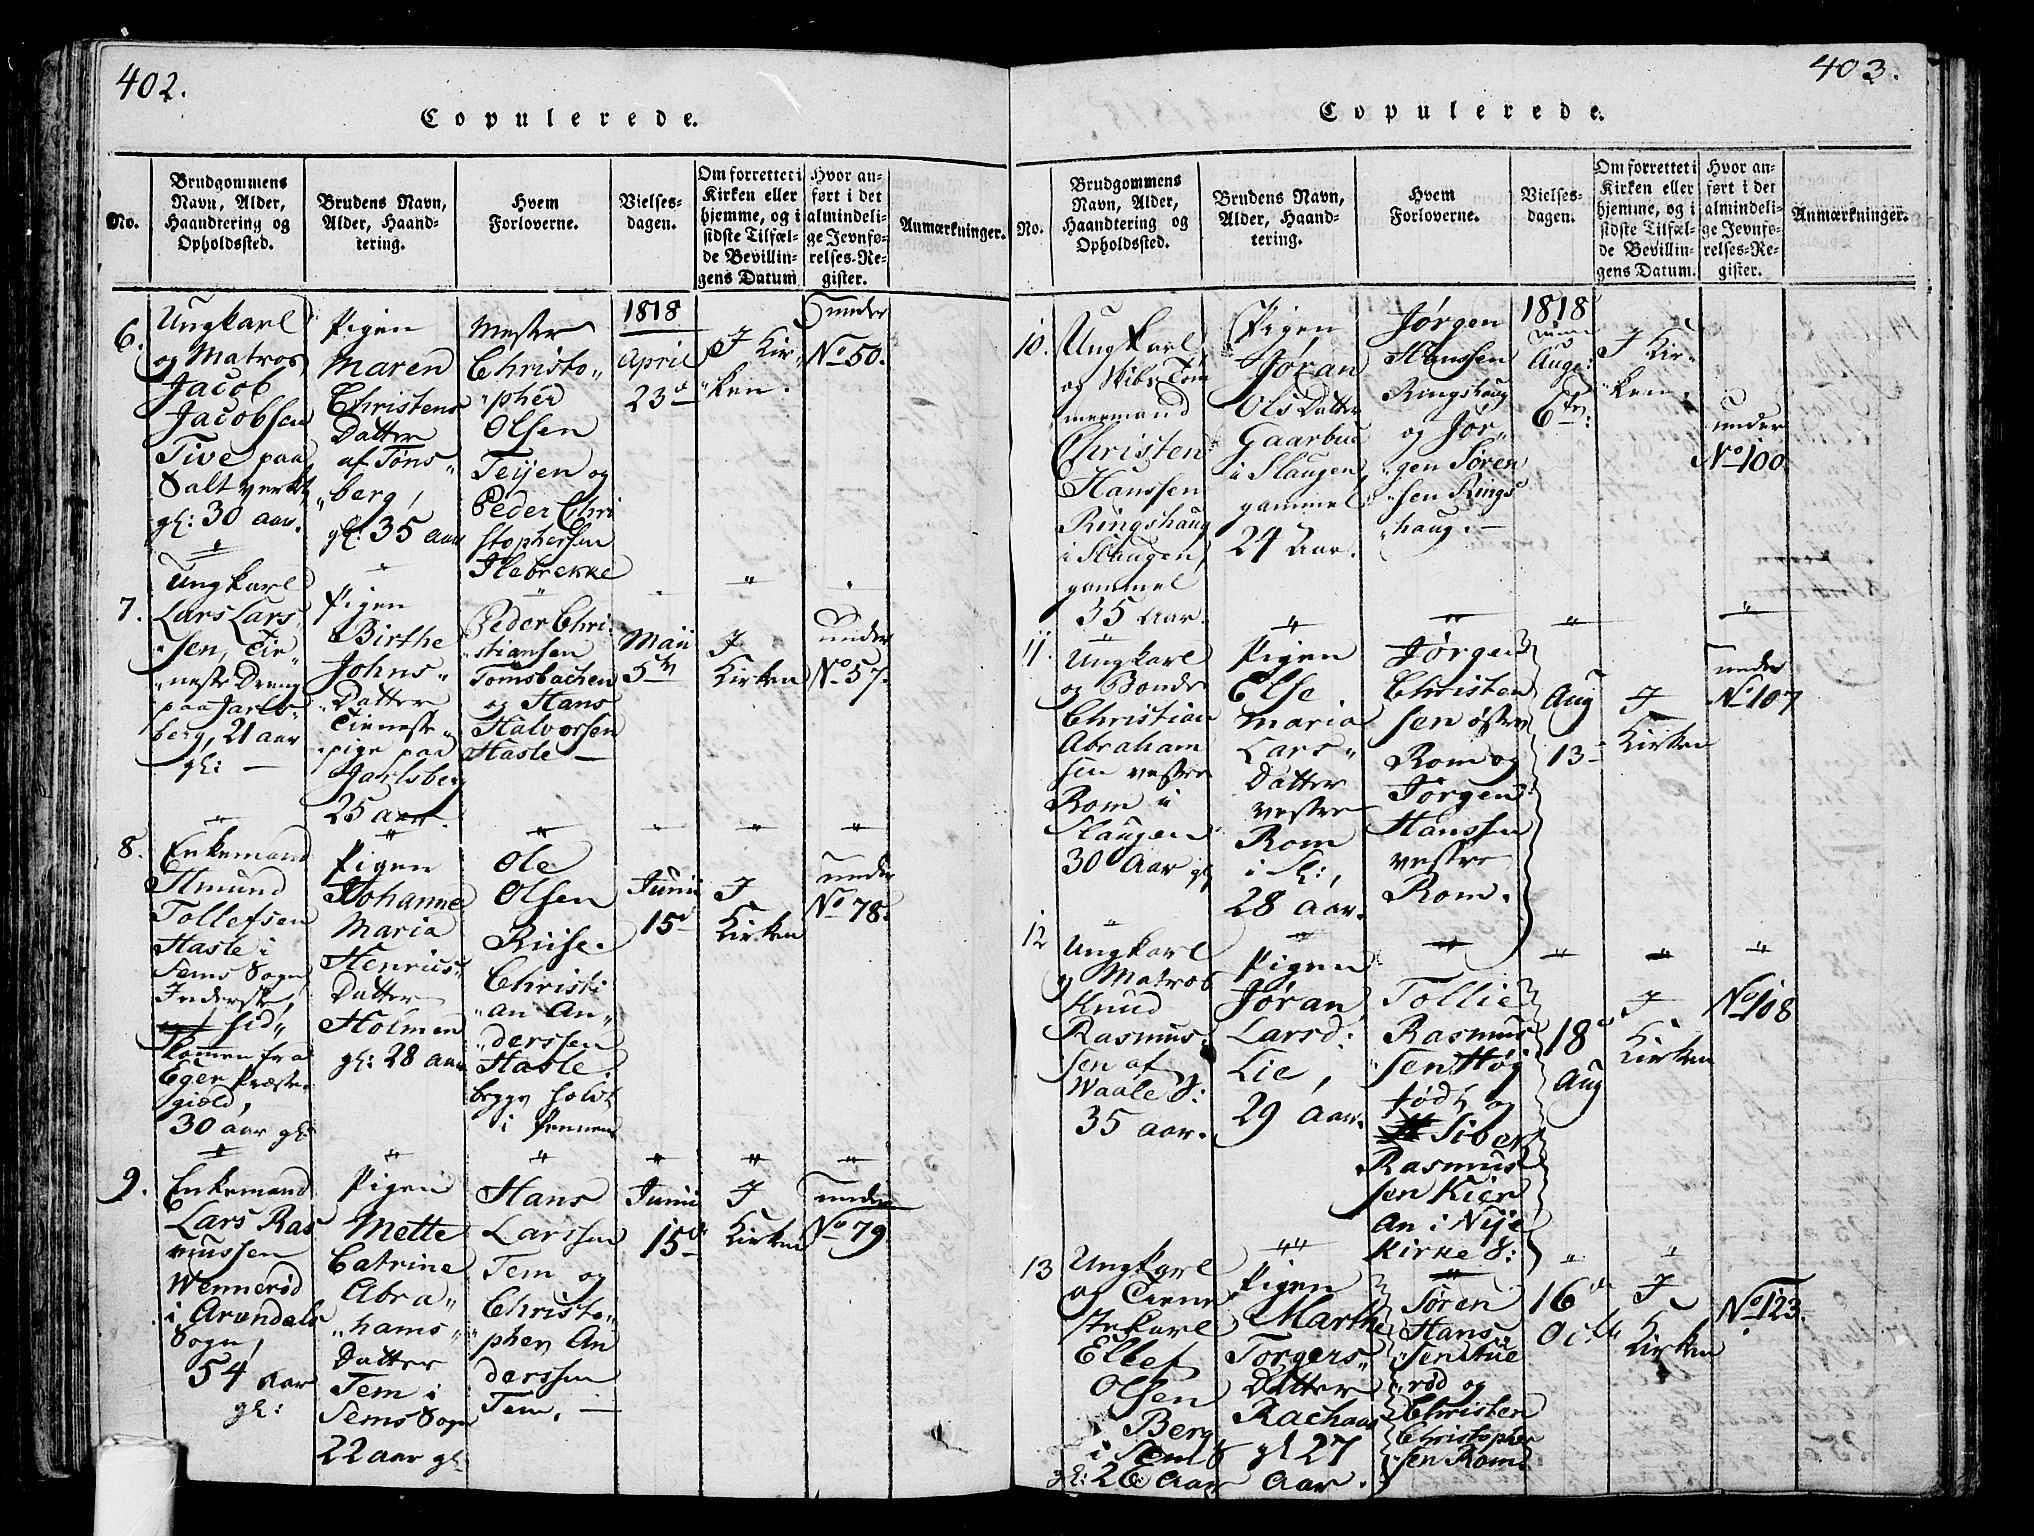 402.
Copulerede.
No.
Brudgommens
Navn, Alder,
Haandtering og
Opholdssted.
Brudens Navn,
Alder, Haand-
tering.
Hvem
Forloverne.
Vielses-
dagen.
Om forrettet i
Kirken eller
hjemme, og i
sidste Tilfæl-
de Bevillin-
gens Datum
Hvor an-
ført i det
almindeli-
ge Jevnfø-
relses-Re-
gister.
Anmærkninger.
6.
Ungkarl
og Matros
Jacob
Jacobsen
Tive paa
Saltverket
gl: 30 aar.
Pigen
Maren
Christens
Datter
af Tøns„
„berg,
gl: 35 aar
Mester
Christo„
„pher
Olsen
Teijen og
Peder Chri
stophersen
Ilebrekke
1818
April
23d
I Kir„
„ken.
under
No 50.
7.
Ungkarl
Lars Lars„
„sen, Tie„
„neste Dreng
paa Jarls„
berg, 21 aar
gl: —
Pigen
Birthe
Johns„
„Datter
Tieneste„
„pige paa
Jarlsberg
25 aar.
Peder Chri„
„stiansen
Tomsbachen
og Hans
Halvorsen
Hasle —
Maii
5te
I
Kirken
under
No 57.
8.
Enkemand
Amund
Tollefsen
Hasle i
Sems Sogn
Inderste,
hid„
kommen fra
Eger Præste„
giæld,
30 aar gl:
Pigen
Johanne
Maria
Henrics„
Datter
Holmen
gl: 28 aar
Ole
Olsen
Riise.
Christi
„an An„
„derssen
Hasle.
begge holdt
i Pennen
Junii
15d
I
Kirken
under
No 78.
9.
Enkemand
Lars Ras
mussen
Wennerød
i Arendals
Sogn,
54 Aar
gl:
Pigen
Mette
Catrine
Abra„
„hams„
Datter
Tem i
Sems Sogn
22 aar gl:
Hans
Larssen
Tem og
Christo„
„pher An
derssen
Tem. —
Junii
15d
I
Kirken
under
No 79.
403.
Copulerede.
No.
Brudgommens
Navn, Alder,
Haandtering og
Opholdssted.
Brudens Navn,
Alder, Haand-
tering.
Hvem
Forloverne.
Vielses-
dagen.
Om forrettet i
Kirken eller
hjemme, og i
sidste Tilfæl-
de Bevillin-
gens Datum.
Hvor an-
ført i det
almindeli-
ge Jevnfø-
relses-Re-
gister.
Anmærkninger.
10.
Ungkarl
og Skibs Tøm
mermand
Christen
Hanssen
Ringshaug
i Slaugen,
gammel
35 Aar.
Pigen
Jøran
Ols Datter
Gaarbue
i Slaugen,
gammel
24 Aar.
Jørgen
Hanssen
Ringshaug
og Jør„
„gen Søren
„sen Rings
„haug. —
1818
Aug:
6te:
I Kir„
„ken.
under
No 100
11.
Ungkarl
og Bonde
Christian
Abraham
sen vestre
Rom i
Slaugen
30 Aar gl:
Pigen
Else
Maria
Lars„
Datter
vestre
Rom
i Sl:,
28 aar.
Jørgen
Christen
sen østre
Rom og
Jørgen
Hanssen
vestre
Rom.
Aug
13
I
Kirken
under
No 107
12
Ungkarl
og Matros
Knud
Rasmus„
sen af
Waale S:
35 aar.
Pigen
Jøran
Larsd:
Lie,
29 aar.
Tollie
Rasmus
„sen Høg
og
Siber
Rasmus
sen Kier
An i Nije
Kirke S:
18d
Aug
I
Kirken
No 108
13
Ungkarl
og Tiene
stekarl
Ellef
Olsen
Berg
i Sem S
gl: 26 aar
Pigen
Marthe
Torgers„
Datter
Rachaas
gl 27
aar.
Søren
Hans„
„sen Stue
„rød og
Christen
Christopher
„sen Rom
16d
Octb
I
Kirken
No 123.